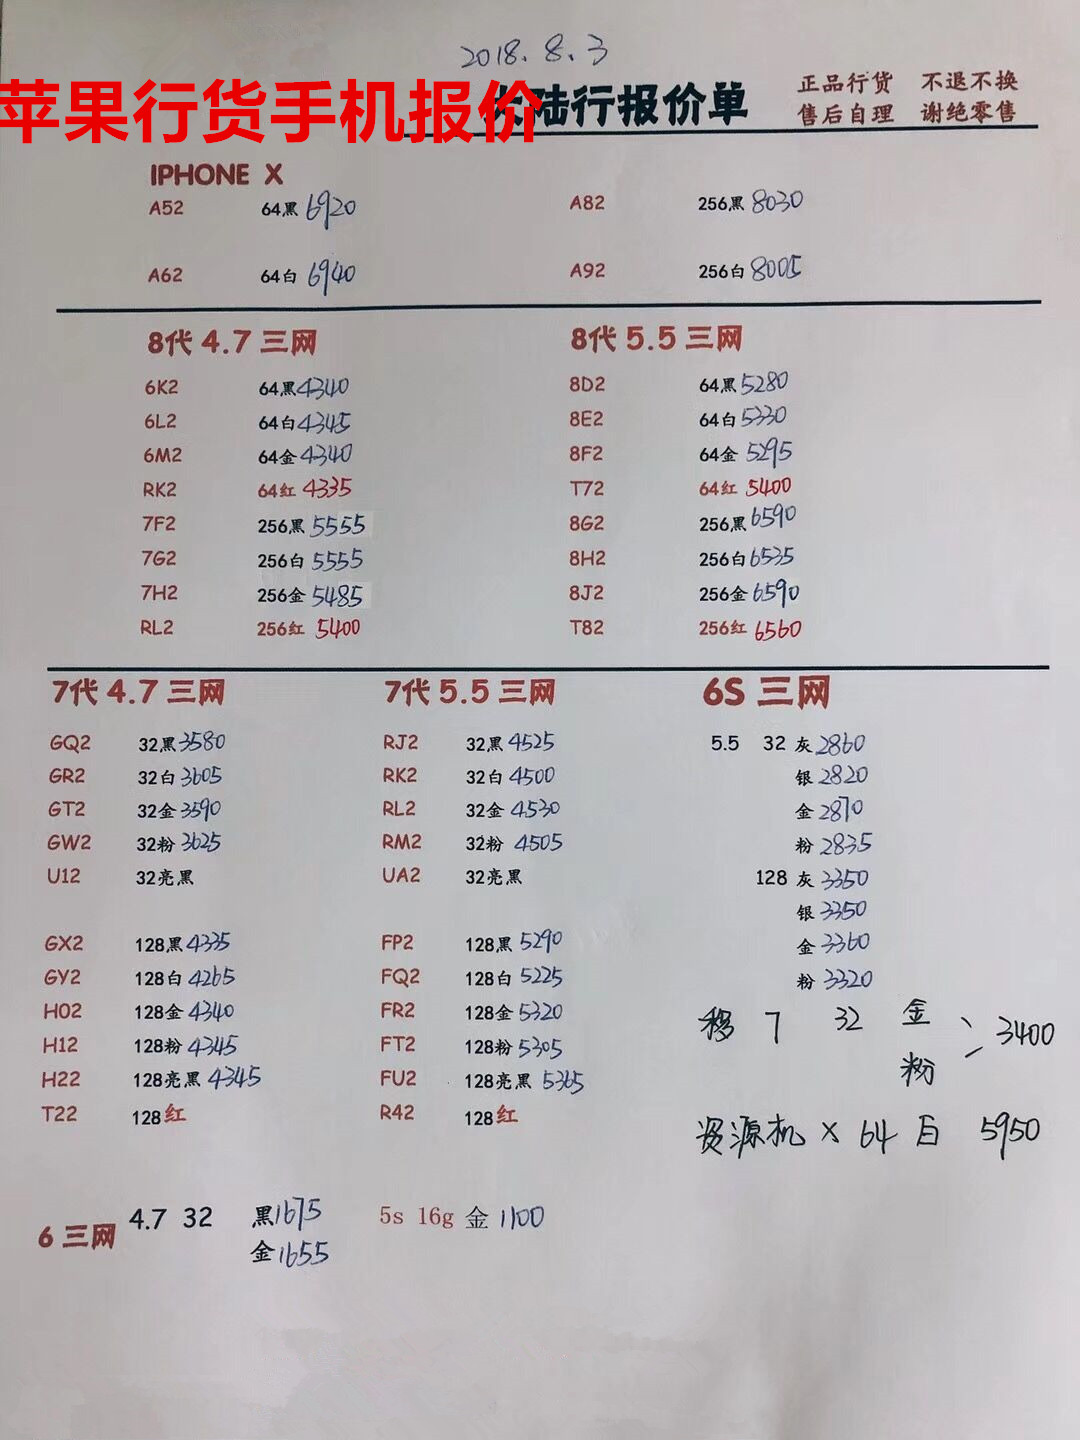 2018.8.3
苹果行货手机报价
大陆行报价单
正品行货 不退不换
售后自理 谢绝零售
IPHONE X
A52 64黑 6920 A82 256黑 8030
A62 64白 6940 A92 256白 8005
8代 4.7 三网 8代 5.5 三网
6K2 64黑 4340 8D2 64黑 5280
6L2 64白 4345 8E2 64白 5330
6M2 64金 4340 8F2 64金 5295
RK2 64红 4335 T72 64红 5400
7F2 256黑 5555 8G2 256黑 6590
7G2 256白 5555 8H2 256白 6535
7H2 256金 5485 8J2 256金 6590
RL2 256红 5400 T82 256红 6560
7代 4.7 三网 7代 5.5 三网 6S 三网
GQ2 32黑 3580 RJ2 32黑 4525 5.5 32 灰 2860
GR2 32白 3605 RK2 32白 4500 银 2820
GT2 32金 3590 RL2 32金 4530 金 2870
GW2 32粉 3625 RM2 32粉 4505 粉 2835
U12 32亮黑 UA2 32亮黑 128 灰 3350
银 3350
GX2 128黑 4335 FP2 128黑 5290 金 3360
GY2 128白 4265 FQ2 128白 5225 粉 3320
H02 128金 4340 FR2 128金 5320 移 7 32 金
H12 128粉 4345 FT2 128粉 5305 粉 3400
H22 128亮黑 4345 FU2 128亮黑 5365
T22 128红 R42 128红 资源机 X 64 白 5950
6 三网 4.7 32 黑 1675 5s 16g 金 1100
金 1655